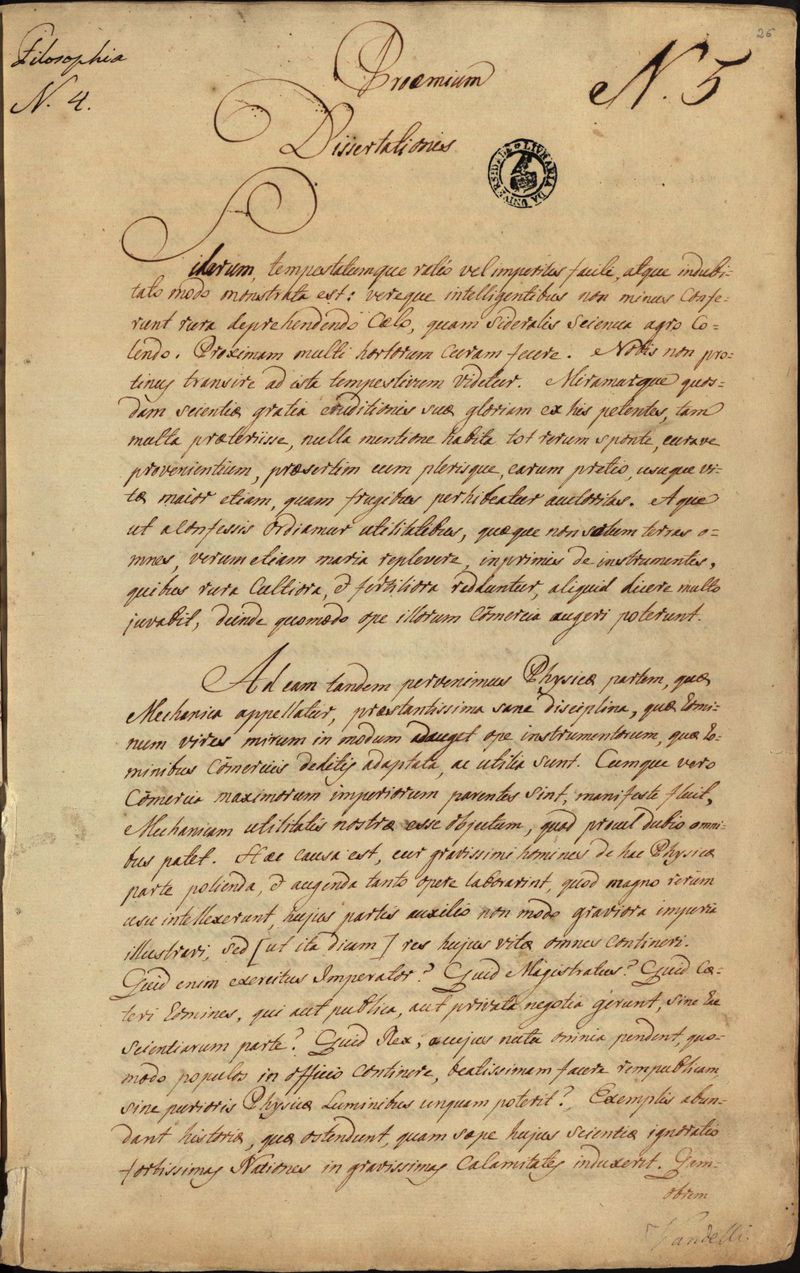 26
Filosophia
N. 4.
Proemium
N. 5
Dissertationis
LIVRARIA DA UNIVERSIDADE
Siderum, tempestatumque ratio vel imperitis facile, atque indubi-
tato modo monstrata est: vereque intelligentibus non minus Confe-
runt rura deprehendendo Cælo, quam sideralis scienca agro Co-
lendo. Proximam multi hortorum curam fecere. Nobis non pro-
tinus transire ad ista tempestivum videtur. Miramurque quos-
dam scientiæ gratia eruditionis suæ gloriam ex his petentes, tam
multa præteriisse, nulla mentione habita tot rerum sponte, curave
provenientium, præsertim cum plerisque, earum pretio, usuque vi-
tæ maior etiam, quam frugibus perhibeatur auctoritas. Aque
ut a Confessis Ordiamur utilitatibus, quæque non solum terras o-
mnes, verum etiam maria replevere, inprimis de instrumentis,
quibus rura Cultiora, & fertiliora redduntur, aliquid dicere multo
juvabit, deinde quomodo ope illorum Cõmercia augeri poterunt.
Ad eam tandem pervenimus Physicæ partem, quæ
Mechanica appellatur, præstantissima sane disciplina, quæ homi-
num vires mirum in modum adauget ope instrumentorum, quæ ho-
minibus Cõmerciis deditis adaptata, ac utilia sunt. Cumque vero
Cõmercia maximorum imperiorum parentes sint, manifeste fluit,
Mechanicam utilitatis nostræ esse objectum, quod procul dubio omni-
bus patet. Hæc causa est, cur gravissimi homines de hac Physicæ
parte polienda, & augenda tanto opere laborarint, quod magno rerum
usu intellexerunt, hujus partis auxilio non modo graviora imperia
illustrari, sed [ut ita dicam] res hujus vitæ omnes contineri.
Quid enim exercitus Imperator? Quid Magistratus? Quid Cæ-
teri homines, qui aut publica, aut privata negotia gerunt, sine hac
scientiarum parte? Quid Rex, cujus nutu omnia pendent, quo-
modo populos in officio Continere, beatissimam facere rempublicam
sine purioris Physicæ Luminibus unquam poterit? Exemplis abun-
dant historiæ, quæ ostendunt, quam sæpe hujus scientiæ ignoratio
fortissimas Nationes in gravissimas Calamitates induxerit. Quam-
obrem
Vandelli